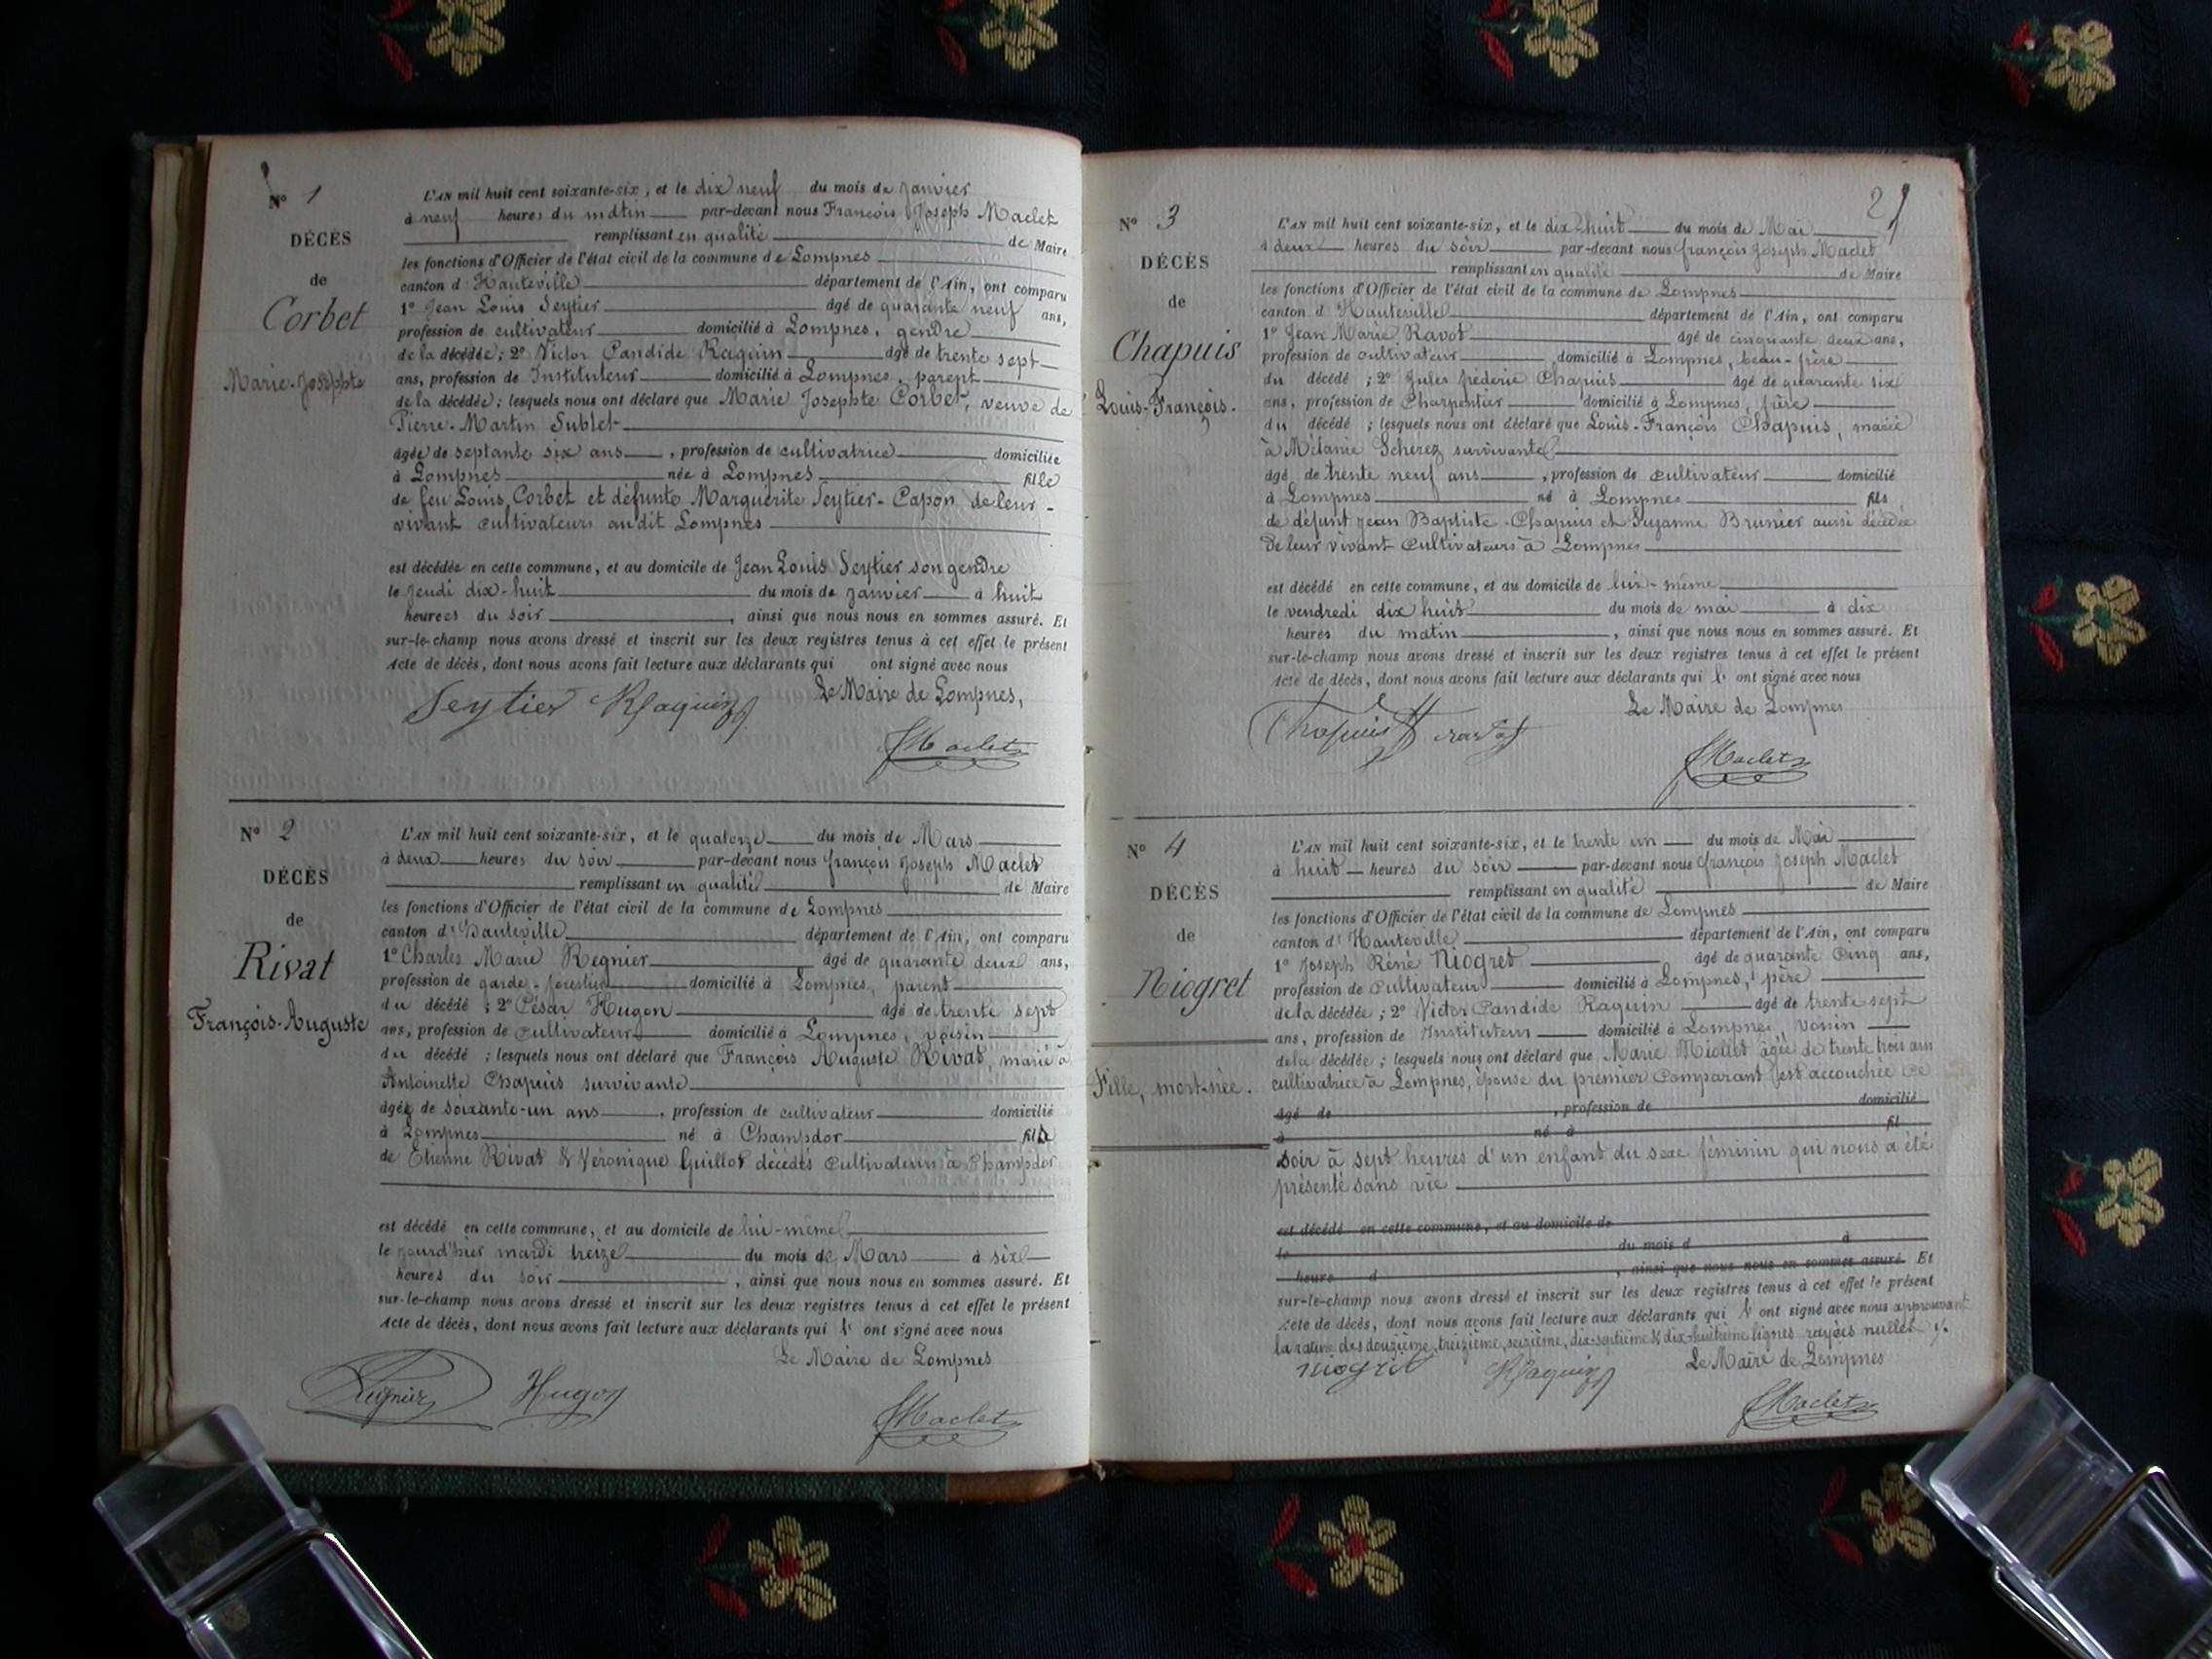 N° 1
DÉCÈS
de
Corbet
Marie-Josephte
L'AN mil huit cent soixante-six, et le dix neuf du mois de janvier
à neuf heures du matin par-devant nous François Joseph Maclet
remplissant en qualité de Maire
les fonctions d'Officier de l'état civil de la commune de Lompnes
canton d'Hauteville département de l'Ain, ont comparu
1° Jean Louis Seytier âgé de quarante neuf ans,
profession de cultivateur domicilié à Lompnes, gendre
de la décédée; 2° Victor Candide Raquin âgé de trente sept
ans, profession de Instituteur domicilié à Lompnes, parent
de la décédée; lesquels nous ont déclaré que Marie Josephte Corbet, veuve de
Pierre-Martin Sublet
âgée de septante six ans, profession de cultivatrice domiciliée
à Lompnes née à Lompnes fille
de feu Louis Corbet et défunte Marguerite Seytier-Capon de leur-
vivant cultivateurs audit Lompnes
est décédée en cette commune, et au domicile de Jean Louis Seytier son gendre
le jeudi dix-huit du mois de janvier à huit
heures du soir, ainsi que nous nous en sommes assuré. Et
sur-le-champ nous avons dressé et inscrit sur les deux registres tenus à cet effet le présent
Acte de décès, dont nous avons fait lecture aux déclarants qui ont signé avec nous
Le Maire de Lompnes,
Seytier Raquin
Maclet
N° 2
DÉCÈS
de
Rivat
François-Auguste
L'AN mil huit cent soixante-six, et le quatorze du mois de Mars
à deux heures du soir par-devant nous françois Joseph Maclet
remplissant en qualité de Maire
les fonctions d'Officier de l'état civil de la commune de Lompnes
canton d'Hauteville département de l'Ain, ont comparu
1° Charles Marie Regnier âgé de quarante deux ans,
profession de garde-forestier domicilié à Lompnes, parent
du décédé; 2° César Hugon âgé de trente sept
ans, profession de cultivateur domicilié à Lompnes, voisin
du décédé; lesquels nous ont déclaré que François Auguste Rivat, marié à
Antoinette Chapuis survivante
âgé de soixante-un ans, profession de cultivateur domicilié
à Lompnes né à Champdor fils
de Etienne Rivat & Véronique Guillot décédés cultivateurs à Champdor
est décédé en cette commune, et au domicile de lui-même
le jourd'hier mardi treize du mois de Mars à six
heures du soir, ainsi que nous nous en sommes assuré. Et
sur-le-champ nous avons dressé et inscrit sur les deux registres tenus à cet effet le présent
Acte de décès, dont nous avons fait lecture aux déclarants qui l' ont signé avec nous
Le Maire de Lompnes
Regnier Hugon
Maclet
2
N° 3
DÉCÈS
de
Chapuis
Louis-François.
L'AN mil huit cent soixante-six, et le dix-huit du mois de Mai
à deux heures du soir par-devant nous françois Joseph Maclet
remplissant en qualité de Maire
les fonctions d'Officier de l'état civil de la commune de Lompnes
canton d'Hauteville département de l'Ain, ont comparu
1° Jean Marie Ravot âgé de cinquante deux ans,
profession de cultivateur domicilié à Lompnes, beau-frère
du décédé; 2° Jules fréderic Chapuis âgé de quarante six
ans, profession de Charpentier domicilié à Lompnes, frère
du décédé; lesquels nous ont déclaré que Louis-François Chapuis, marié
à Mélanie Scherez survivante
âgé de trente neuf ans, profession de cultivateur domicilié
à Lompnes né à Lompnes fils
de défunt Jean Baptiste Chapuis et Suzanne Brunier aussi décédée
de leur vivant Cultivateurs à Lompnes
est décédé en cette commune, et au domicile de lui-même
le vendredi dix huit du mois de mai à dix
heures du matin, ainsi que nous nous en sommes assuré. Et
sur-le-champ nous avons dressé et inscrit sur les deux registres tenus à cet effet le présent
Acte de décès, dont nous avons fait lecture aux déclarants qui l' ont signé avec nous
Le Maire de Lompnes
Chapuis ravot
Maclet
N° 4
DÉCÈS
de
Niogret
Fille, mort-née.
L'AN mil huit cent soixante-six, et le trente un du mois de Mai
à huit heures du soir par-devant nous françois Joseph Maclet
remplissant en qualité de Maire
les fonctions d'Officier de l'état civil de la commune de Lompnes
canton d'Hauteville département de l'Ain, ont comparu
1° Joseph Réné Niogret âgé de quarante Cinq ans,
profession de Cultivateur domicilié à Lompnes, père
de la décédée; 2° Victor Candide Raquin âgé de trente sept
ans, profession de Instituteur domicilié à Lompnes, voisin
de la décédée; lesquels nous ont déclaré que Marie Miollet âgée de trente trois ans
cultivatrice à Lompnes, épouse du premier Comparant s'est accouchée ce
âgé de, profession de domicilié
à né à fil
soir à sept heures d'un enfant du sexe féminin qui nous a été
présenté sans vie
est décédé en cette commune, et au domicile de
le du mois d à
heure d, ainsi que nous nous en sommes assuré. Et
sur-le-champ nous avons dressé et inscrit sur les deux registres tenus à cet effet le présent
Acte de décès, dont nous avons fait lecture aux déclarants qui l' ont signé avec nous approuvant
la rature des douzième, treizième, seizième, dix-septième & dix-huitième lignes rayées nulles
Le Maire de Lompnes
niogret Raquin
Maclet